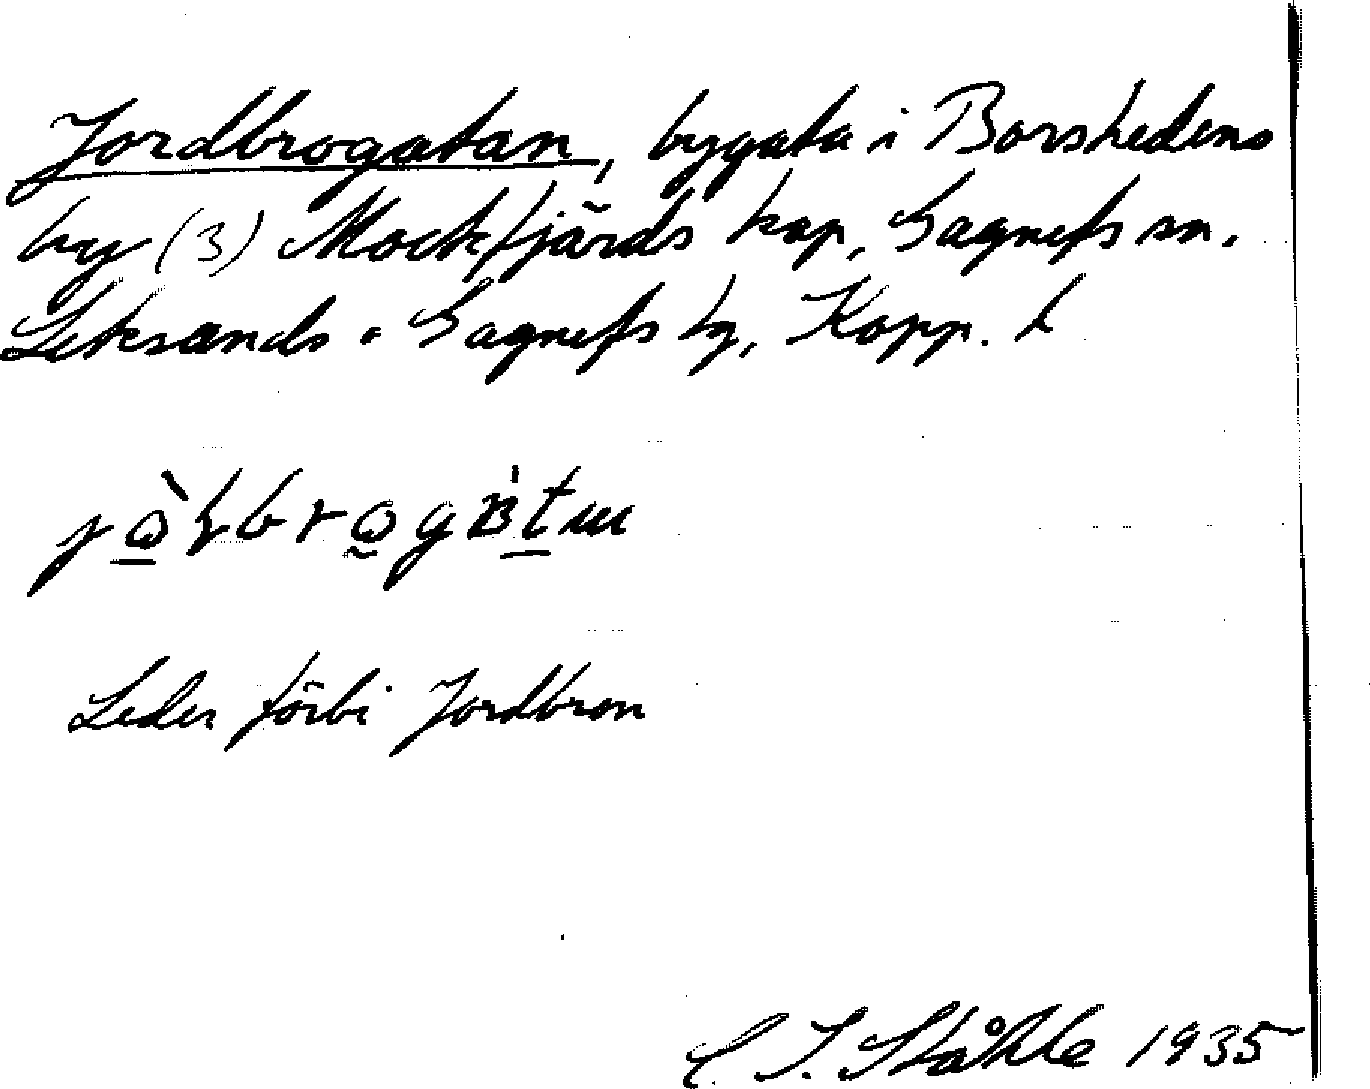 Jordbrogatan, bygata i Borshedens
by (3) Mockfjärds kap, Gagnefs sn.
Leksands o Gagnefs tg, Kopp. l
Leder förbi Jordbron
C. I. Ståhle 1935